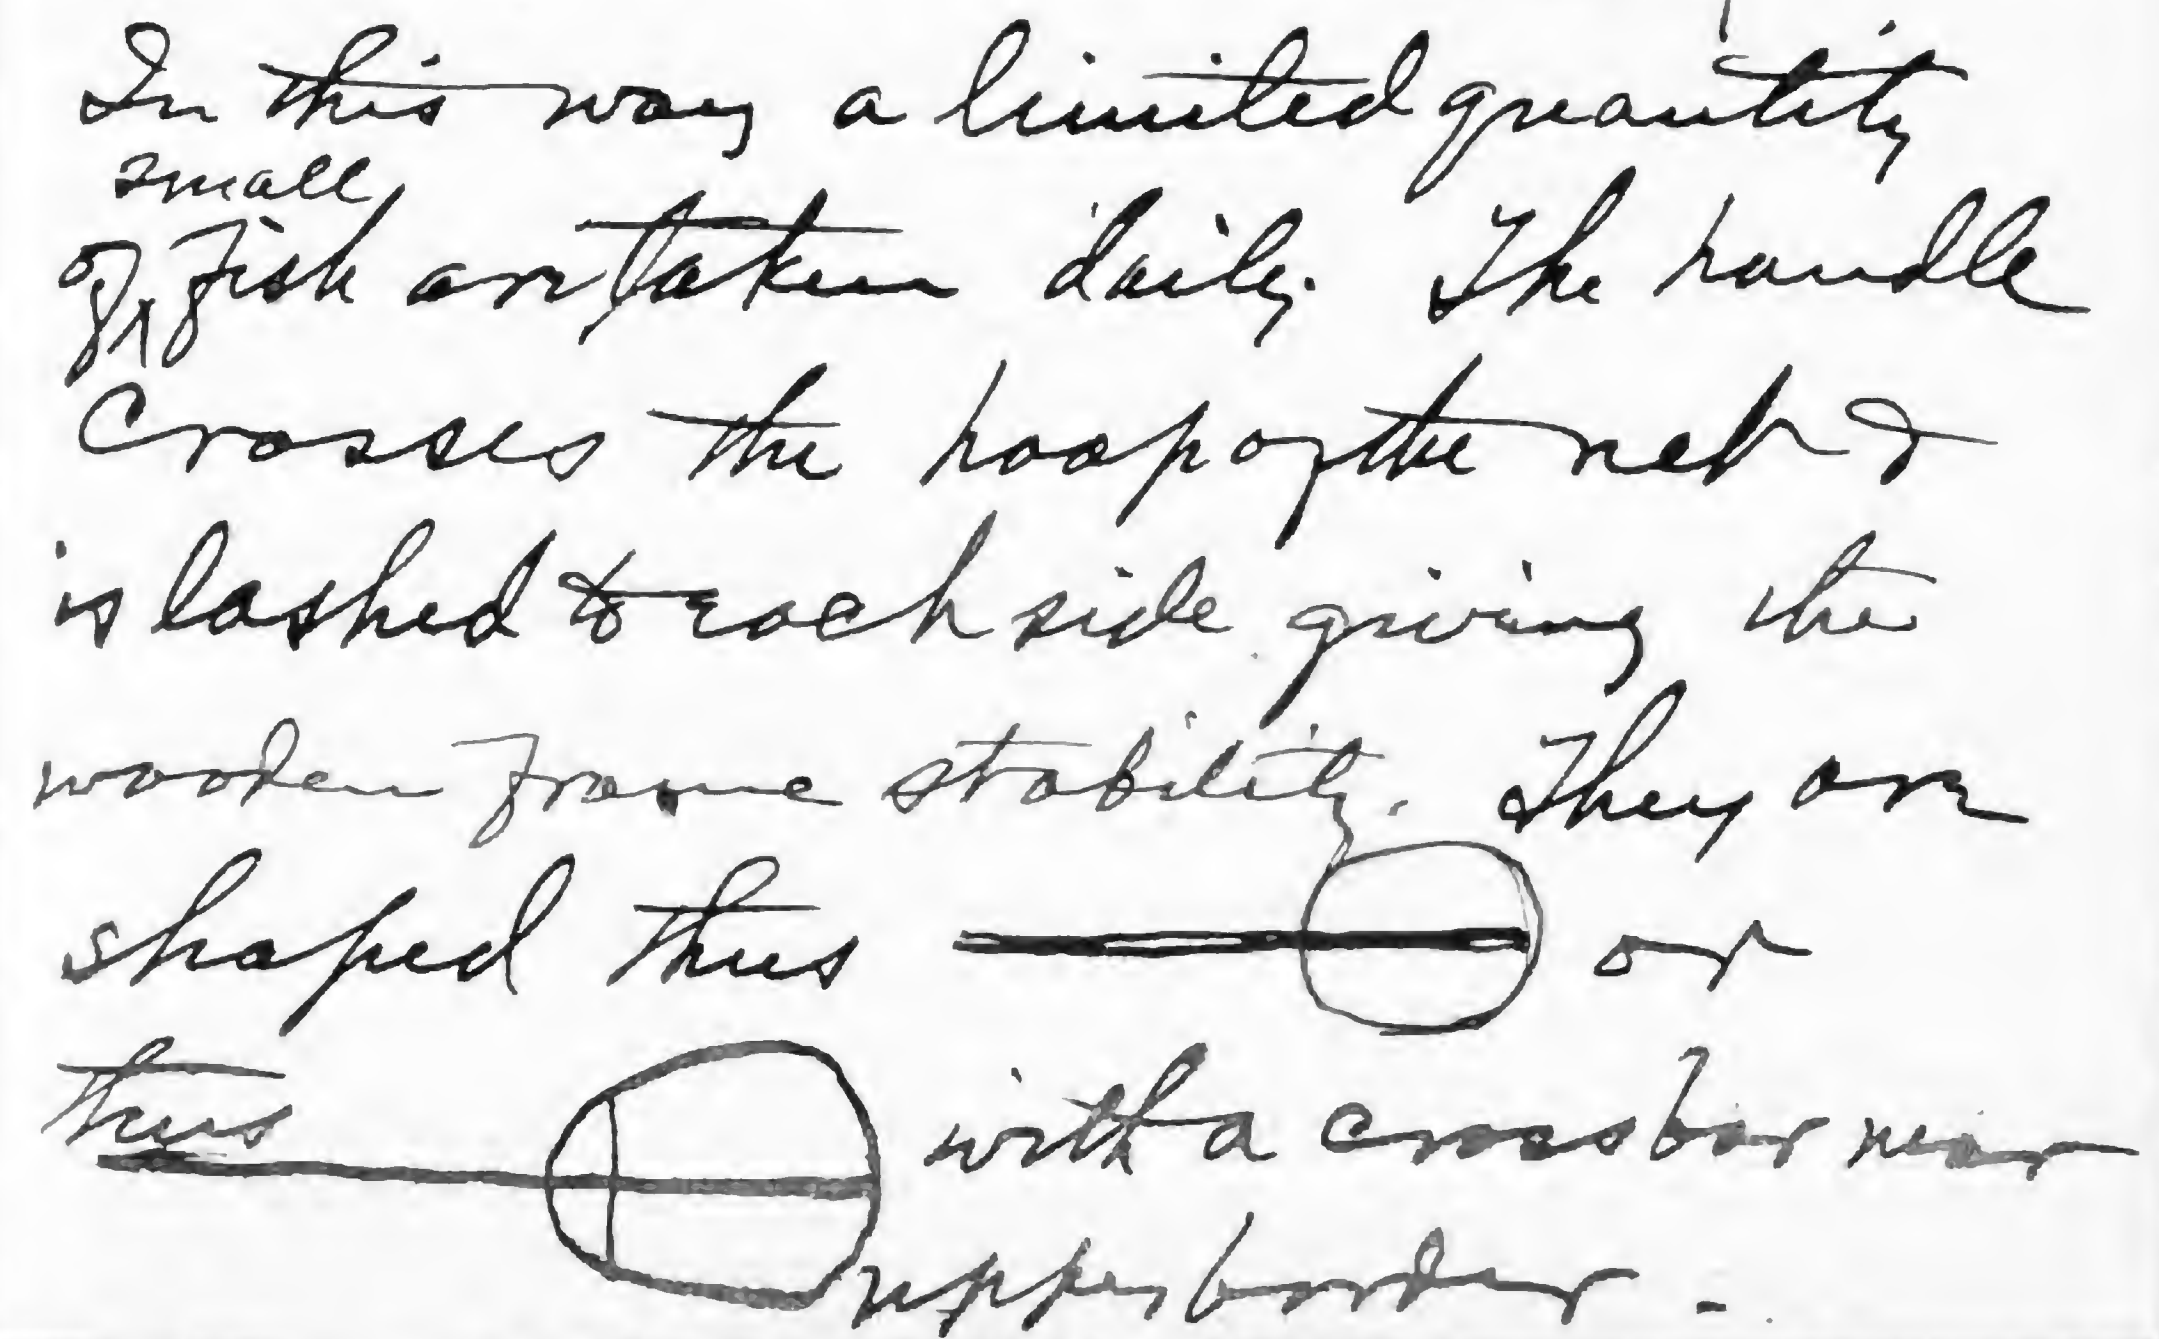 In this way a limited quantity
small
of ^ fish are taken daily. The handle
crosses the hoop of the net &
is lashed to each side giving the
wooden frame stability. They are
shaped thus or
thus with a cross bar near
upper border -